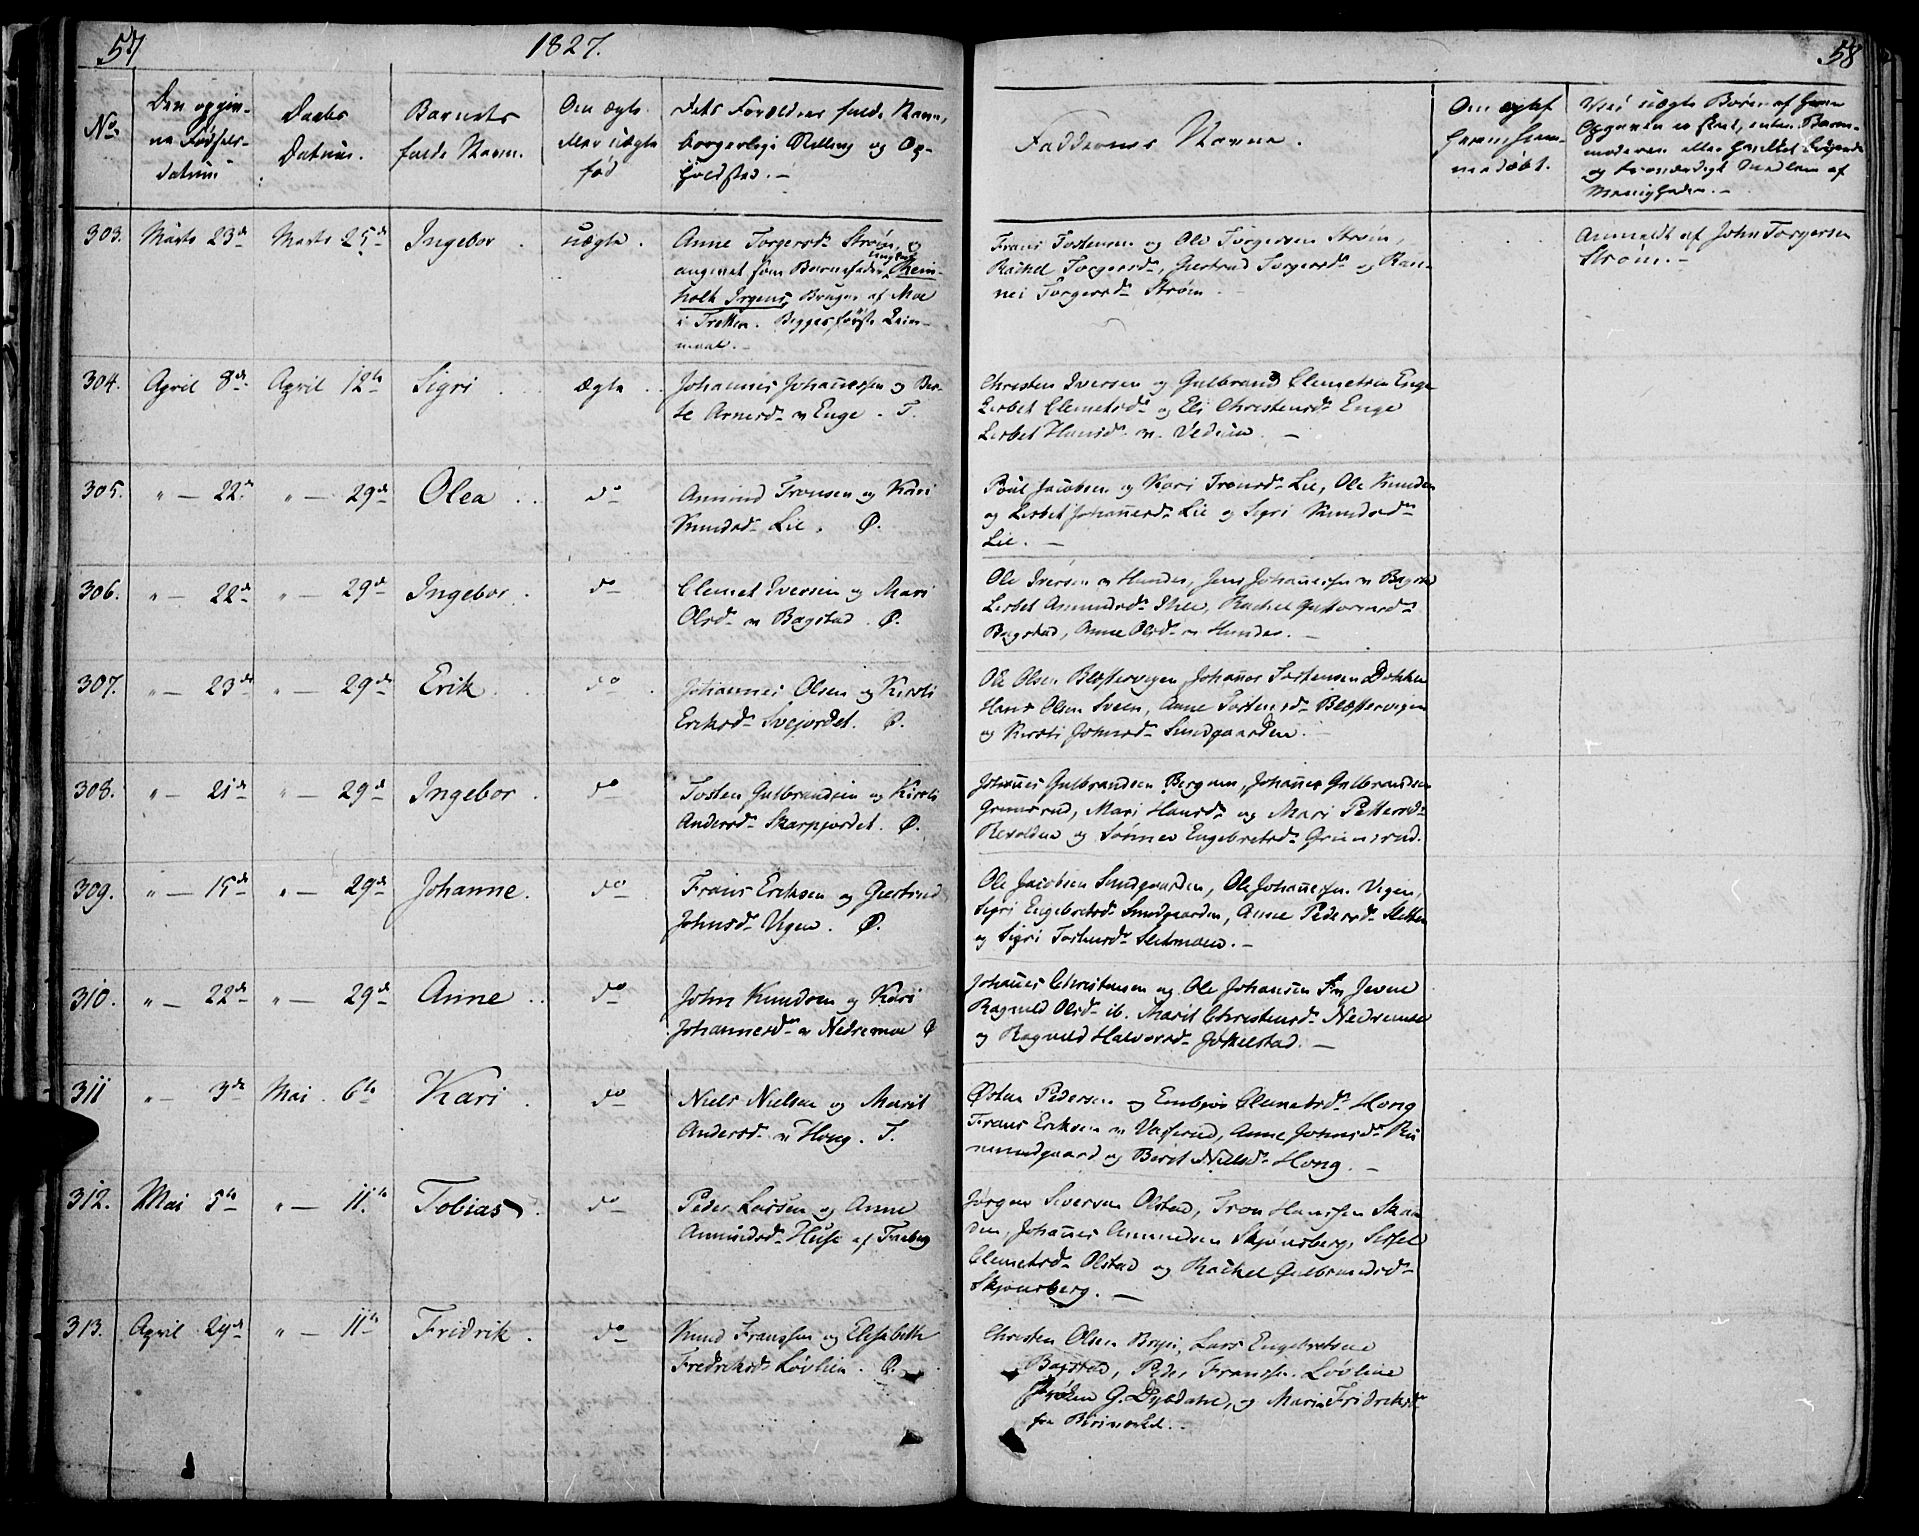 57
1827.
58
No.
Den opgiv-
ne Fødsels-
datum
Daabs
Datum.
Barnets
fulde Navn.
Om ægte
eller uægte
fød
Dets Forældres fulde Navne,
borgerlige Stilling og Op-
holdsted. -
Faddernes Navne.
Om
hjemme-
Ved uægte Børn af hvem
Opgaven er skeet, enten Barne-
moderen eller
og troværdigt Medlem af
Menigheden. -
303. Marts 23de Marts 25de Ingebor uægte.
Anne Torgersdr Strøm, og
angivet som Barnefader, ungkarl Rein-
holt Irgens, Bruger af Moe
i Tretten. Begges første Leier-
maal. -
Frans Tostensen og Ole Torgersen Strøm,
Rachel Torgersdr, Giertrud Torgersdr og Ran-
nei Torgersdr Strøm
Anmeldt af John Torgersen
Strøm. -
304. April 8de April 12te Sigri ægte
Johannes Johannessen og Ber-
te Arnesdr n Enge. T.
Christen Iversen og Gulbrand Clemetsen Enge
Lisbet Clemetsdr og Eli Christensdr Enge
Lisbet Hansdr n. -
305. " - 22de " - 29de Olea do
Amund Tronsen og Kari
Knudsdr Lie. Ø.
Poul Jacobsen og Kari Tronsdr Lie, Ole Knudsen
og Lisbet Johannesdr Lie og Sigri Knudsdr
Lie. -
306. " - 22de " - 29de Ingebor do
Clemet Iversen og Mari
Olsdr n Bagstad. Ø.
Ole Iversen n Hunder, Jens Johannessen n Bagstad
Lisbet Amundsdr Ihle, Rachel Guttormsdr
Bagstad, Anne Olsdr n Hunder. -
307. " - 23de " - 29de Erik do
Johannes Olsen og Kirsti
Eriksdr Svejordet. Ø.
Ole Olsen Blestervegen Johannes Tostensen Dokken
Hans Olsen Sveen, Anne Tostensdr Blestervegen
og Kirsti Johnsdr Sundgaarden. -
308. " - 21de " - 29de Ingebor do
Tosten Gulbrandsen og Kirsti
Andersdr Skarpjordet. Ø.
Johannes Gulbrandsen Bergum, Johannes Gulbrandsen
Grimsrud, Mari Hansdr og Mari Pettersdr
og Sønnev Engebretsdr Grimsrud.
309. " - 15de " - 29de Johanne. do
Frans Eriksen og Giertrud
Johnsdr Vegen. Ø.
Ole Jacobsen Sundgaarden, Ole Johannessen Vegen,
Sigri Engebretsdr Sundgaarden, Anne Pedersdr Sletten
og Sigri Tostensdr Sletmoen. -
310. " - 22de " - 29de Anne do
John Knudsen og Kari
Johannesdr n Nedremoe Ø
Johannes Christensen og Ole Johansen Jevne
Ragnild Olsdr ib. Marit Christensdr Nedremoe
og Ragnild Halvorsdr Jøkelstad. -
311 " - 3de Mai 6te Kari do
Niels Nielsen og Marit
Andersdr n Hong. T.
Østen Pedersen og Embjør Clemetsdr Hong
Frans Eriksen n Vaserud, Anne Johnsdr Ru-
nnundgaard og Berit Nielsdr Hong. -
312. Mai 5te " - 11te Tobias do
Peder Larsen og Anne
Amundsdr Huse af Faaberg
Jørgen Siversen Olstad, Tron Hanssen Skaa-
den, Johannes Amundsen Skjønsberg, Sissel
Clemetsdr Olstad og Rachel Gulbrandsdr
Skjønsberg. -
313. April 29de " - 11te Fridrik. do
Knud Franssen og Elisabeth
Fredriksdr Løvlien. Ø.
Christen Olsen Bryn, Lars Engebretsen
Bagstad, Peder Franssen Løvlien
Frøken G. Dybdahl, og Maria Fridriksdr
fra